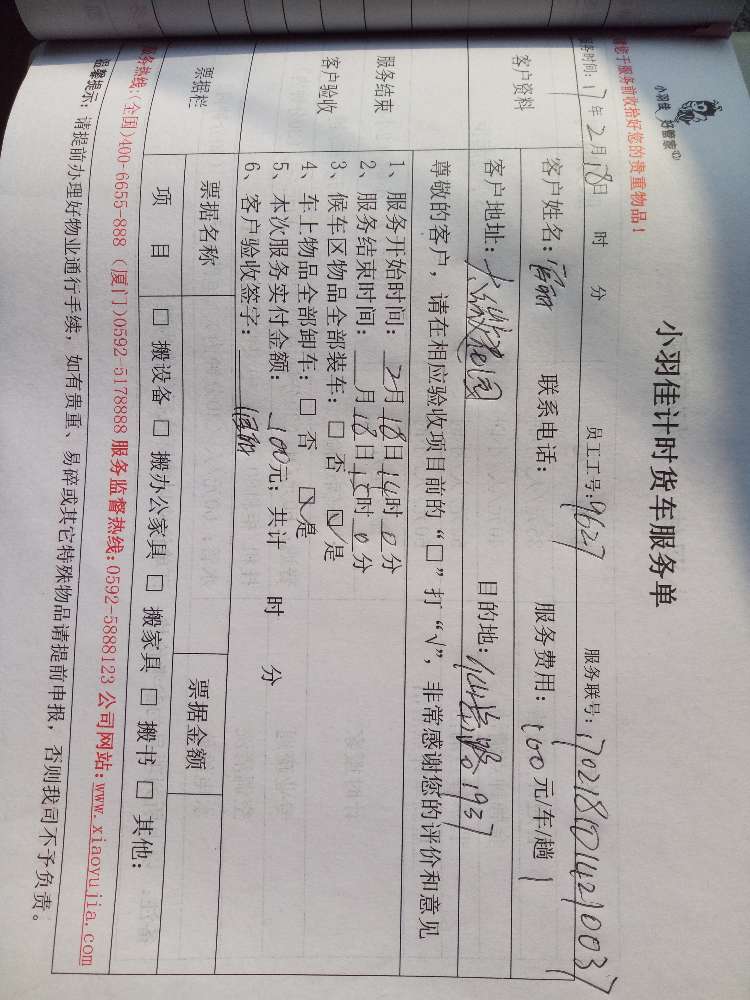 小羽佳 好管家
您于服务前收拾好您的贵重物品!
小羽佳计时货车服务单
服务时间: 17年2月18日 时 分 员工工号: 9627 服务联号: 170218101421003
客户资料
客户姓名: 联系电话: 服务费用: 100元/车/趟 1
客户地址: 目的地: 仙岳路1937
服务结束
客户验收
尊敬的客户, 请在相应验收项目前的“□”打“√”, 非常感谢您的评价和意见
1、服务开始时间: 2月18日14时0分
2、服务结束时间: 月18日15时0分
3、候车区物品全部装车: □ 否 ☑ 是
4、车上物品全部卸车: □ 否 ☑ 是
5、本次服务实付金额: 100元; 共计 时 分
6、客户验收签字:
票据栏
票据名称 票据金额
项 目 □ 搬设备 □ 搬办公家具 □ 搬家具 □ 搬书 □ 其他:
服务热线:(全国)400-6655-888 (厦门)0592-5178888 服务监督热线:0592-5888123 公司网站:www.xiaoyujia.com
温馨提示: 请提前办理好物业通行手续, 如有贵重、易碎或其它特殊物品请提前申报, 否则我司不予负责。